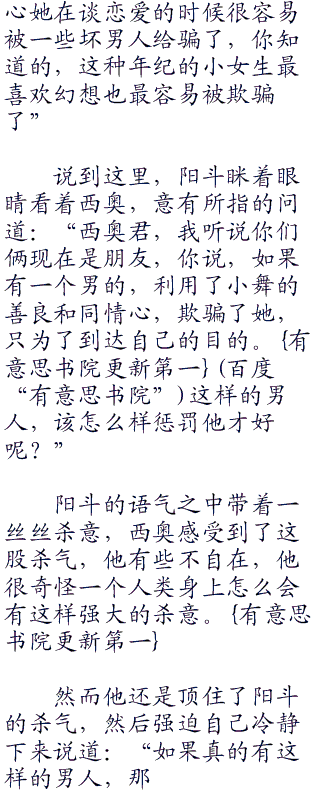 心她在谈恋爱的时候很容易
被一些坏男人给骗了，你知
道的，这种年纪的小女生最
喜欢幻想也最容易被欺骗
了”
说到这里，阳斗眯着眼
睛看着西奥，意有所指的问
道：“西奥君，我听说你们
俩现在是朋友，你说，如果
有一个男的，利用了小舞的
善良和同情心，欺骗了她，
只为了到达自己的目的。{有
意思书院更新第一}(百度
“有意思书院”)这样的男
人，该怎么样惩罚他才好
呢？”
阳斗的语气之中带着一
丝丝杀意，西奥感受到了这
股杀气，他有些不自在，他
很奇怪一个人类身上怎么会
有这样强大的杀意。{有意思
书院更新第一}
然而他还是顶住了阳斗
的杀气，然后强迫自己冷静
下来说道：“如果真的有这
样的男人，那